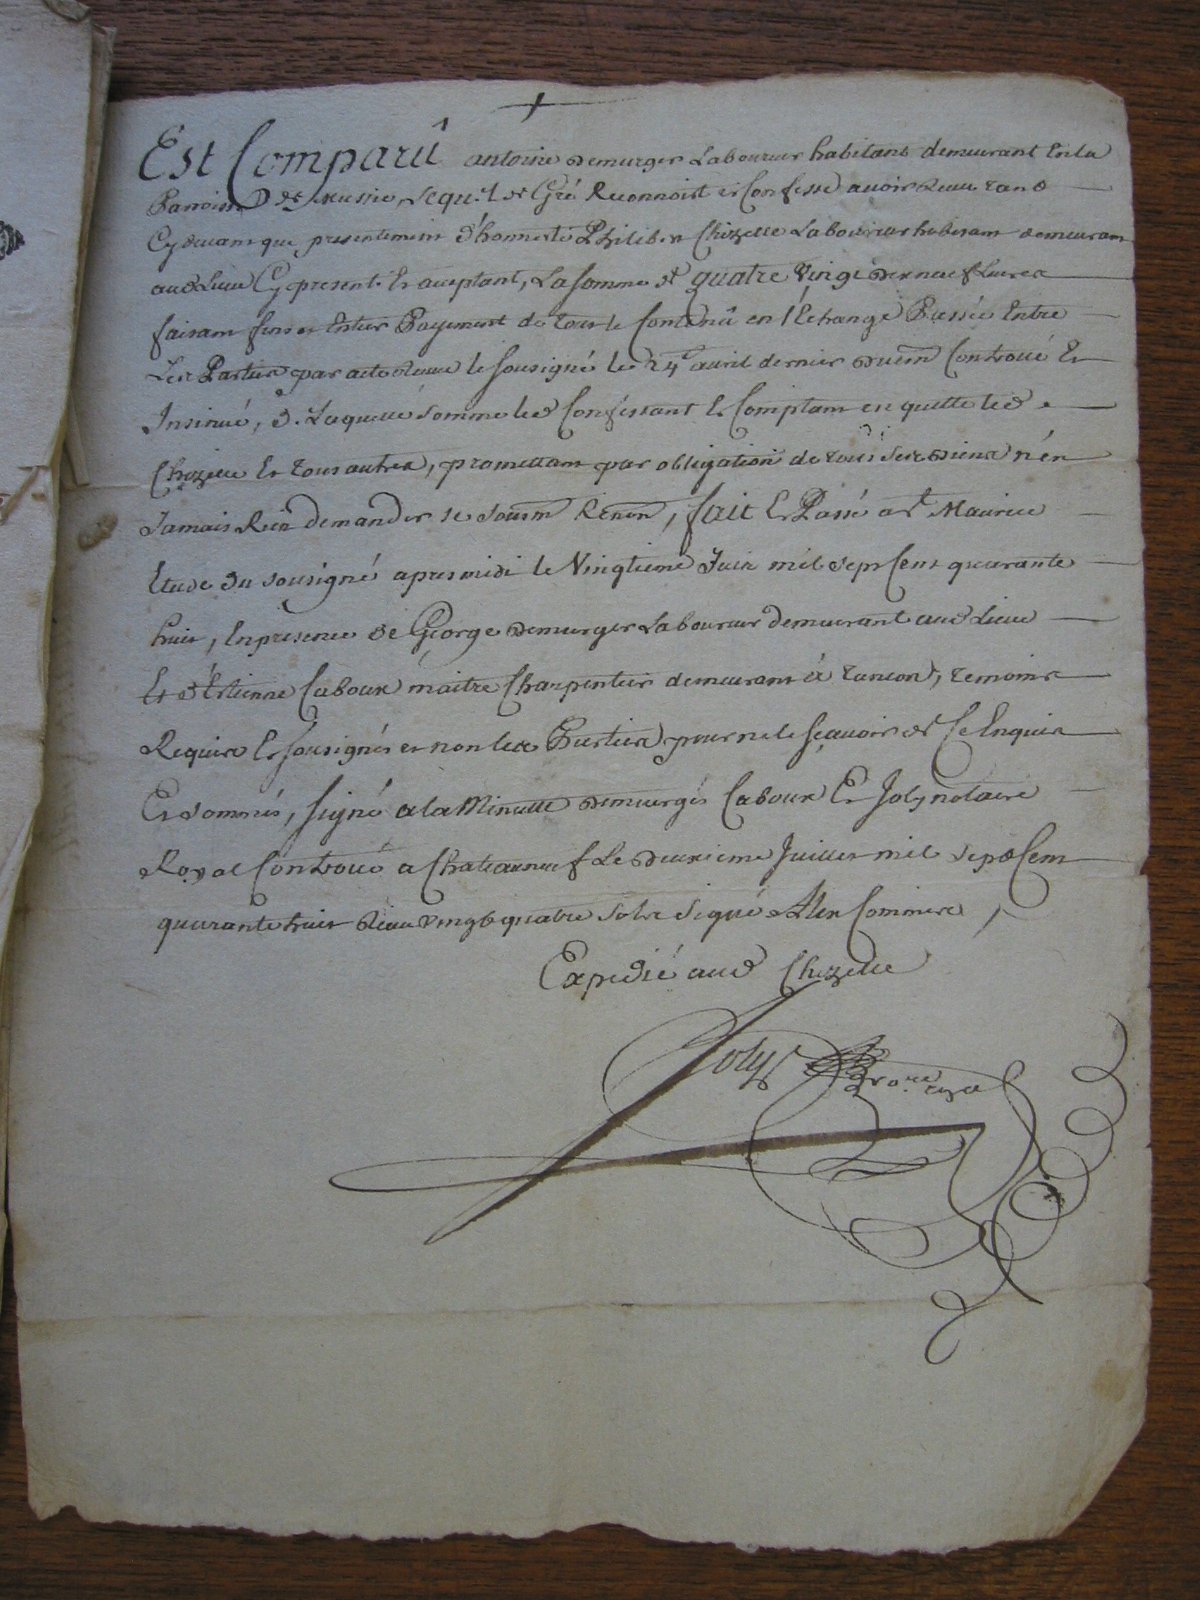 Est Comparû antoine demurger Laboureur habitant demeurant En la
Parroisse de mussie, Lequel de Gré Reconnoist et Confesse avoir Receu tant
Cydevant que presentement d'honneste Philibert Chizelle Laboureur habitant demeurant
aud Lieu Cy present Et aceptant, La somme de quatre Vingt dix neuf Livres
faisant fin et Entier Payement de tout le Contenû en l'Echange Passée Entre
Les Parties par acte Receu le sousigné le 24e avril dernier duem Controlé Et
Insinué, d. Laquelle somme led Confessant Et Comptant en quitte led
Chizelle Et tous autres, promettant par obligation de tous ses biens n'en
Jamais Rien demander se soum Renon, fait Et Passé a st Maurice
Etude du sousigné apres midi le Vingtieme Juin mil sept Cent quarante
huit, En presence de George demurger Laboureur demeurant aud Lieu
Et d'Estienne Caboux maitre Charpentier demeurant à tancon, temoins
Requis Et sousignés et non les Parties pour ne le sçavoir de Ce Enquis
Et sommés, signé a la Minutte demurger Caboux Et Joly notaire
Royal Controlé a Chateauneuf Le deuxieme Juillet mil sept Cent
quarante huit Receu vingt quatre sols signé Alex Commerc ,
Expedié aud Chizelle
Joly